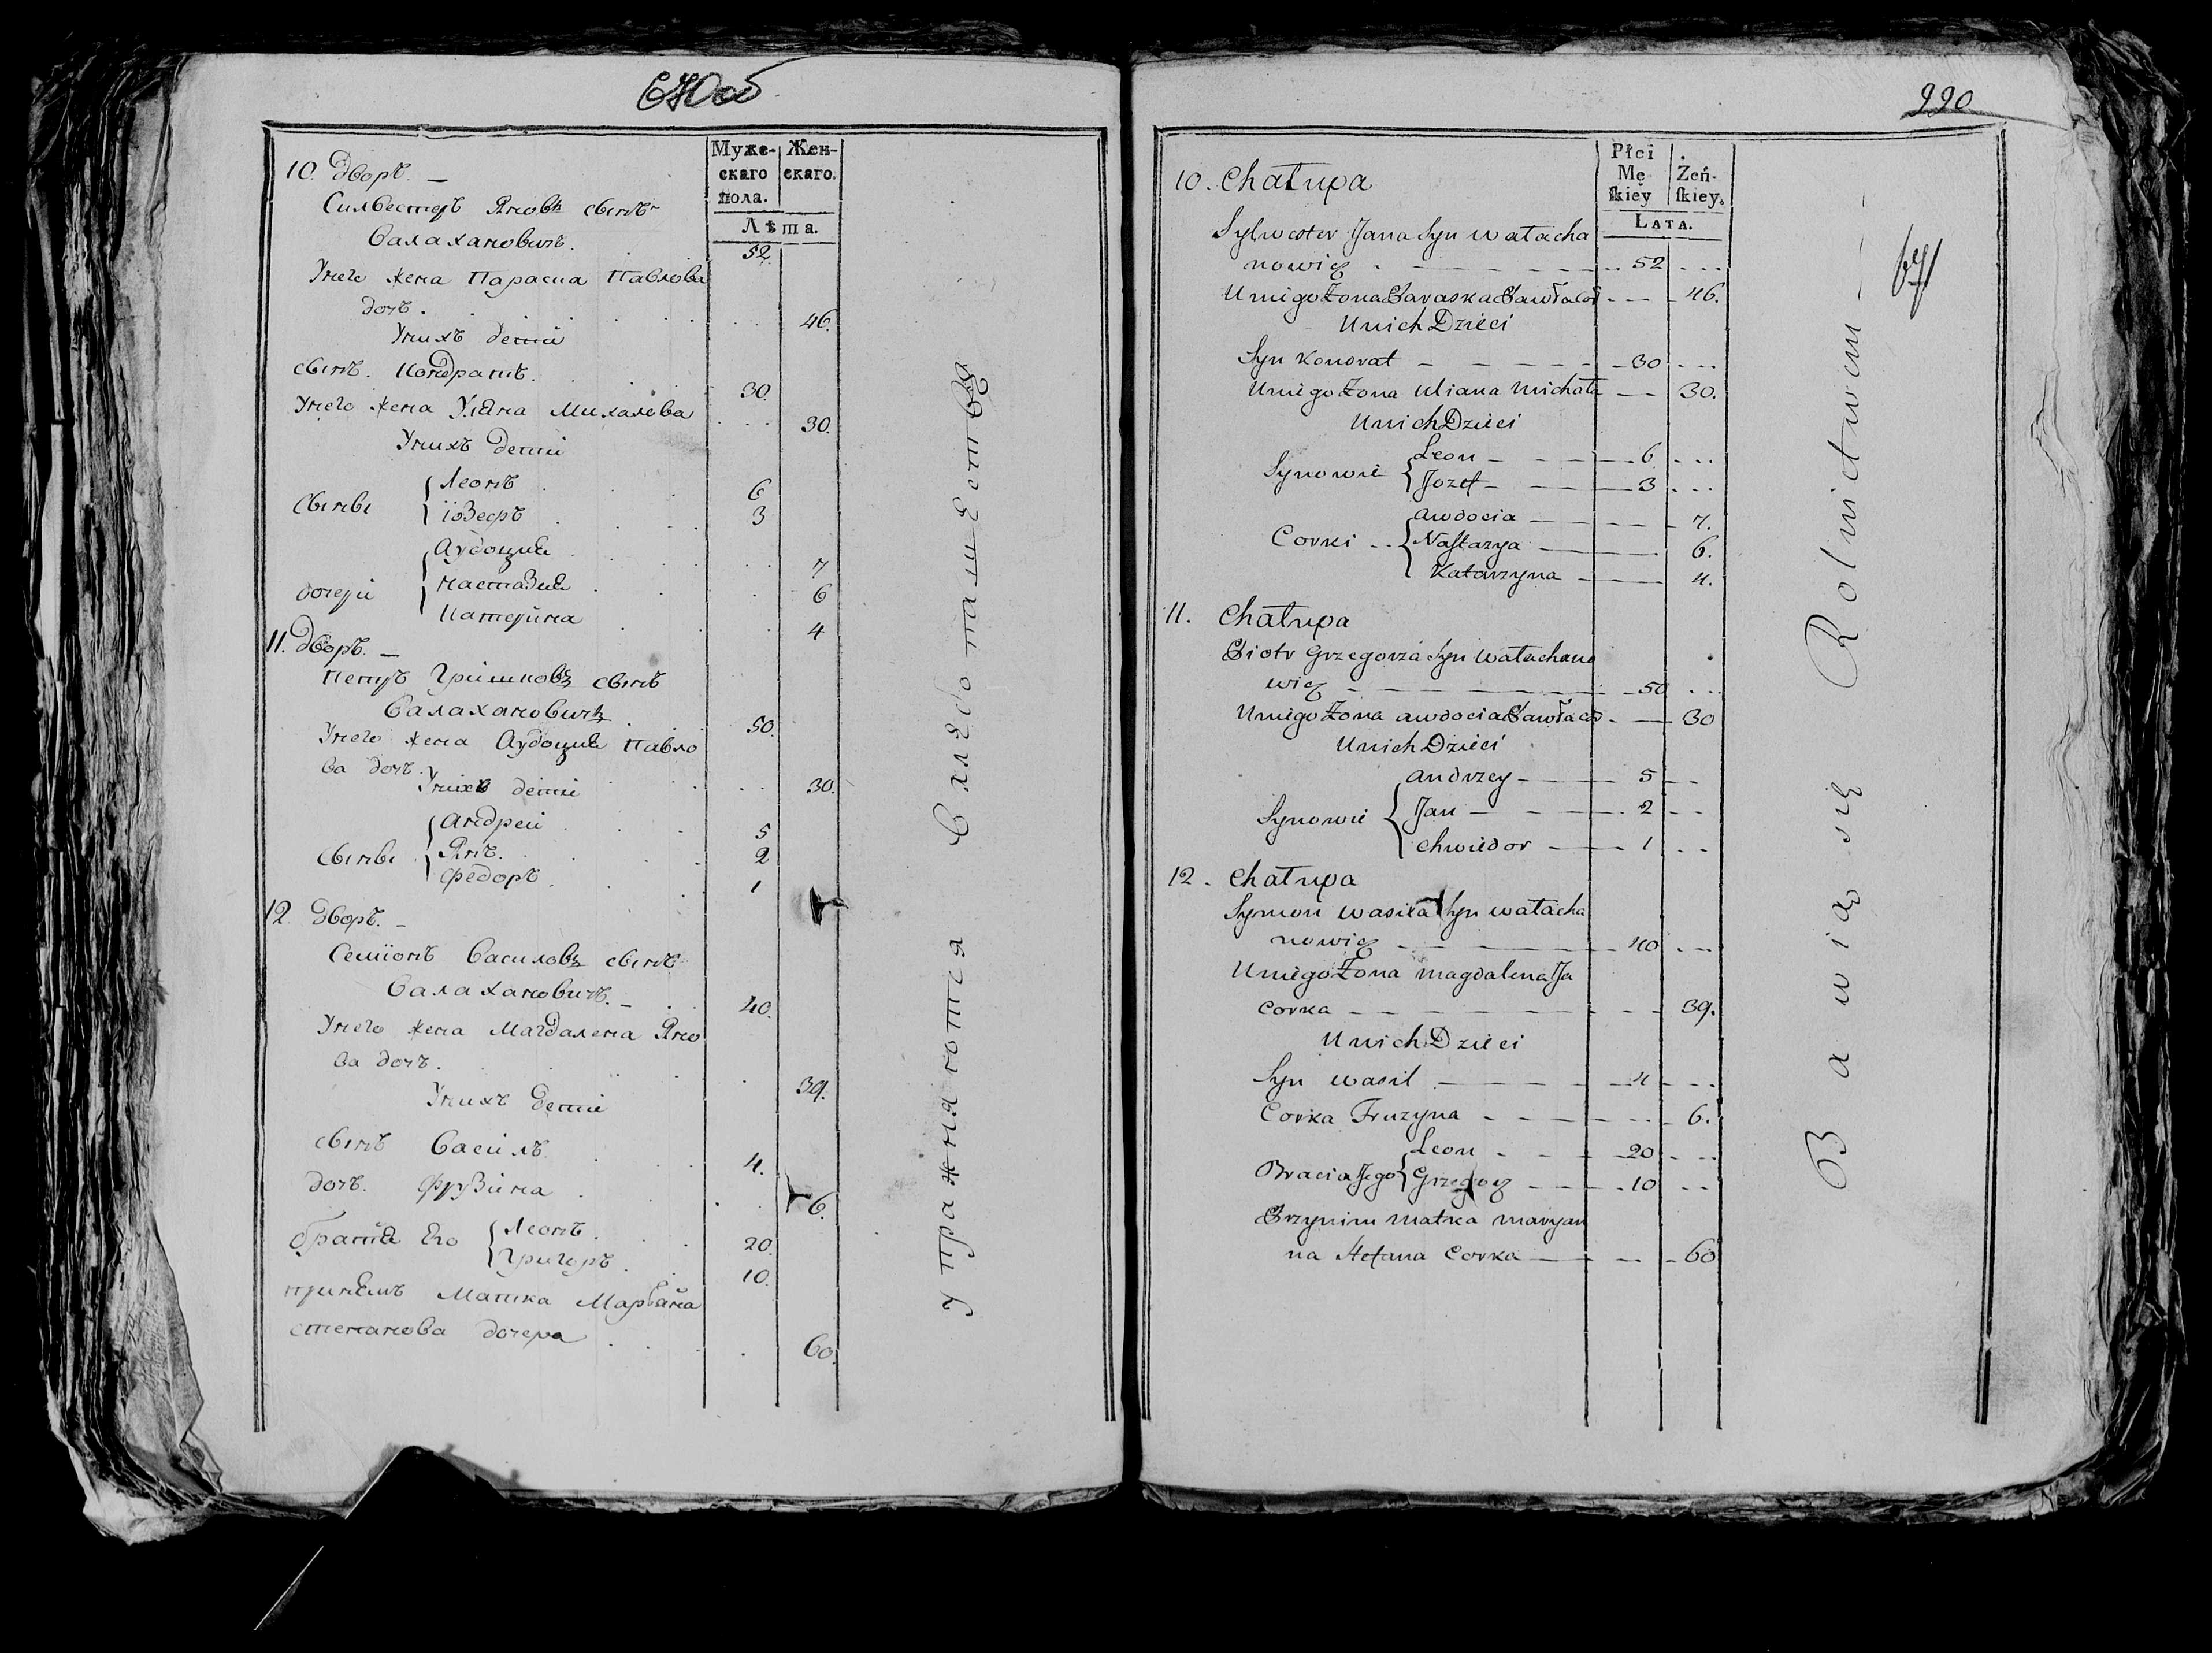 Муже-
скаго
пола.
Жен-
скаго.
Лѣта.
10. Дворъ. —
Силвестеръ Яновъ сынъ
Валахановичъ. 52.
Унего жена Параска Павлова
дочь. 46.
Унихъ дети
сынъ. Кондратъ. 30.
Унего жена Уляна Михалова 30.
Унихъ дети
Сыны { Леонъ 6
Іозефъ 3
дочери { Аудоция 7
Настазия 6
Катерина 4
11. Дворъ. —
Петръ Гришковъ сынъ
Валахановичъ 50.
Унего жена Аудоция Павло
ва дочь. 30.
Унихъ дети
Сыны { Андреи 5
Янъ. 2
Федоръ. 1
12. Дворъ. —
Семионъ Василовъ сынъ
Валахановичъ. — 40.
Унего жена Магдалена Яно
ва дочь. 39.
Унихъ дети
сынъ Василъ. 4.
дочь. Фрузина 6.
братия Его { Леонъ. 20.
Григоръ. 10.
принемъ Матка Марьяна
степанова дочера 60.
упражняются
220
Płci
Mę
skiey
Żeń-
skiey.
LATA.
10. Chałupa
Sylwester Jana Syn Wałacha
nowicz 52
Uniego Żona Paraska Pawła Cor 46.
Unich Dzieci
Syn Kondrat 30
Uniego Żona Uliana Michała 30.
Unich Dzieci
Synowie { Leon 6
Jozef 3
Corki { Awdocia 7.
Nastazya 6.
Katarzyna 4.
11. Chałupa
Piotr Grzegorza Syn Wałachano
wicz 50
Uniego Żona Awdocia Pawła Cor 30
Unich Dzieci
Synowie { Andrzey 5
Jan 2
Chwiedor 1
12. Chałupa
Symon Wasila Syn Wałacha
nowicz 40
Uniego Żona Magdalena Ja
Corka 39.
Unich Dzieci
Syn Wasil 4
Corka Fruzyna 6.
Bracia Jego { Leon 20
Grzegorz 10
Przynim Matka Maryan
na Stefana Corka 60
Bawią się Rolnictwem